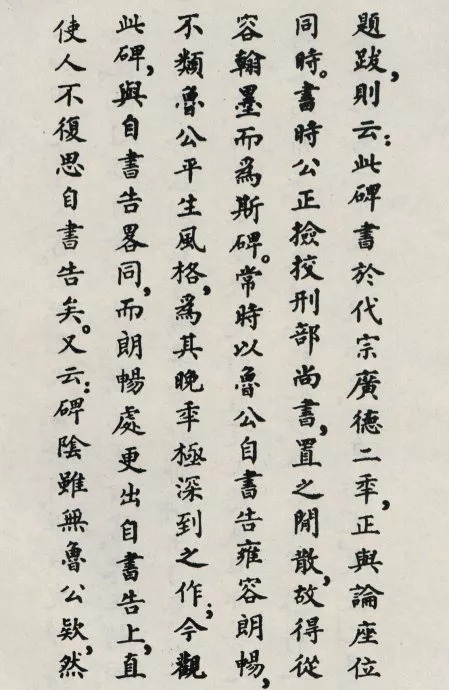 題跋，則云：此碑書於代宗廣德二秊，正與論座位
同時。書時公正撿挍刑部尚書，置之閒散，故得從
容翰墨而為斯碑。常時以魯公自書告雍容朗暢，
不類魯公平生風格，為其晚秊極深到之作；今觀
此碑，與自書告畧同，而朗暢處更出自書告上，直
使人不復思自書告矣。又云：碑陰雖無魯公欵，然